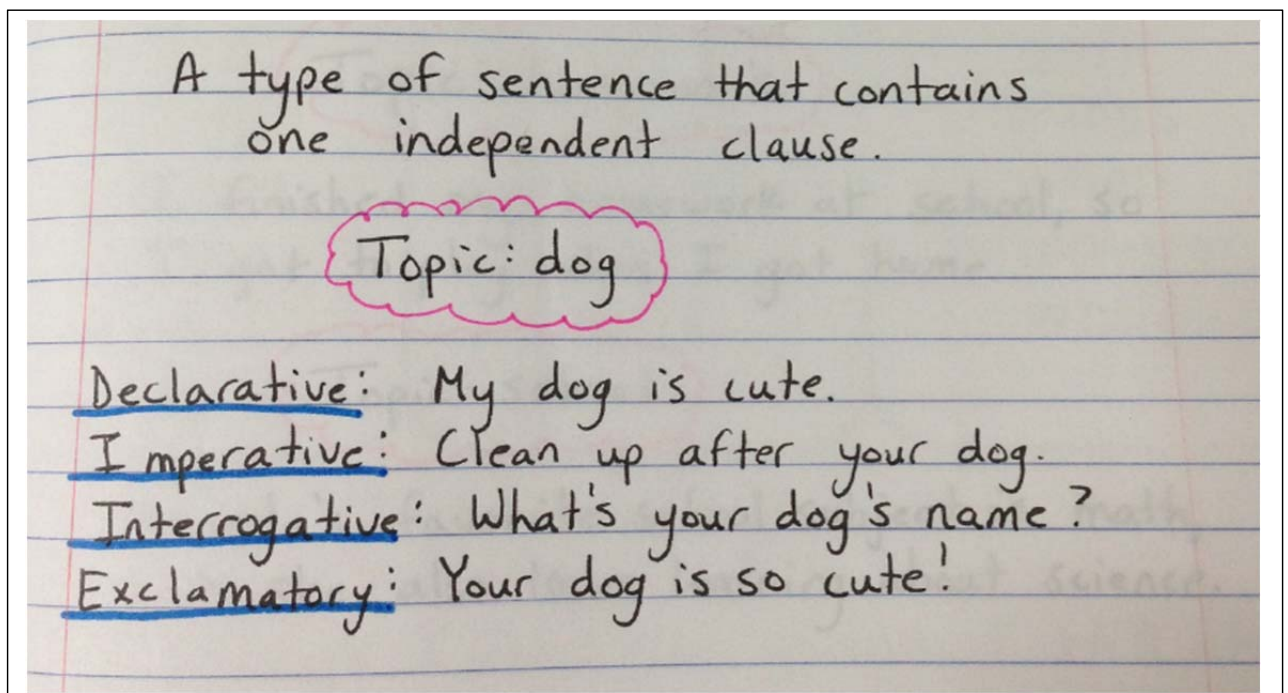 A type of sentence that contains
one independent clause.
Topic: dog
Declarative: My dog is cute.
Imperative: Clean up after your dog.
Interrogative: What's your dog's name?
Exclamatory: Your dog is so cute!